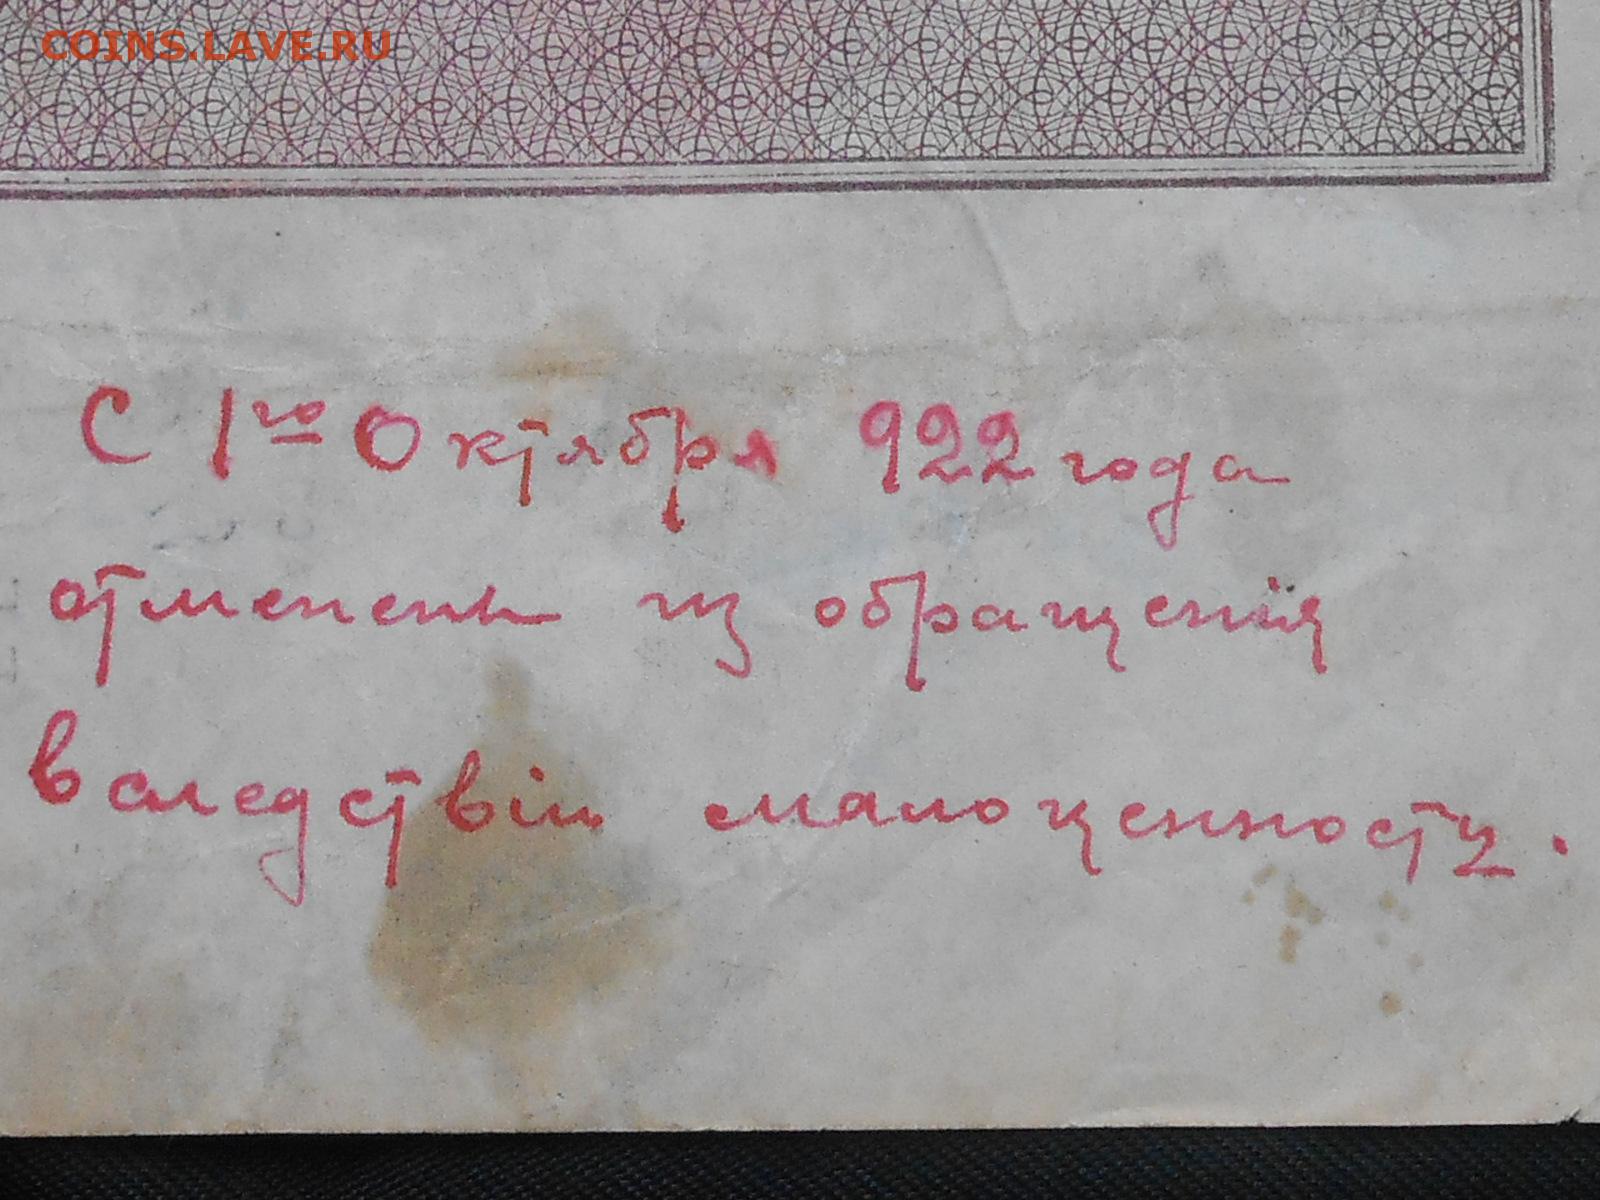 COINS.LAVE.RU
С 1го Октября 922 года
отменены из обращенія
вследствіи малоценносту.